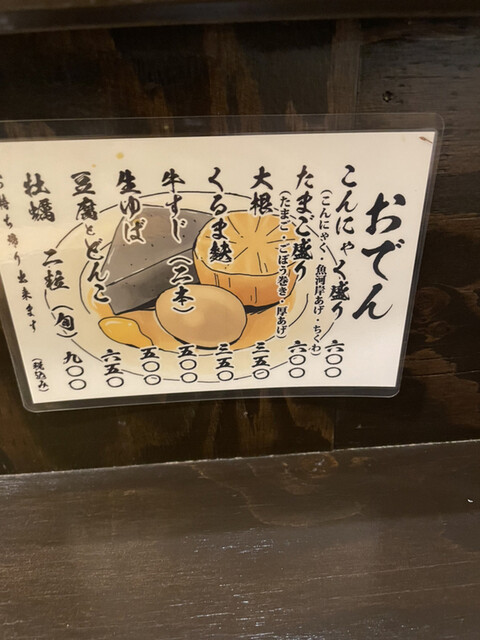 おでん
こんにゃく盛り 六〇〇
(こんにゃく 魚河岸あげ・ちくわ)
たまご盛り 六〇〇
(たまご・ごぼう巻き・厚あげ)
大根 三五〇
くるま麩 三五〇
牛すじ(二本) 五〇〇
生ゆば 五〇〇
豆腐とどんこ 六五〇
牡蠣 二粒(旬) 九〇〇
(税込み)
お持ち帰り出来ます